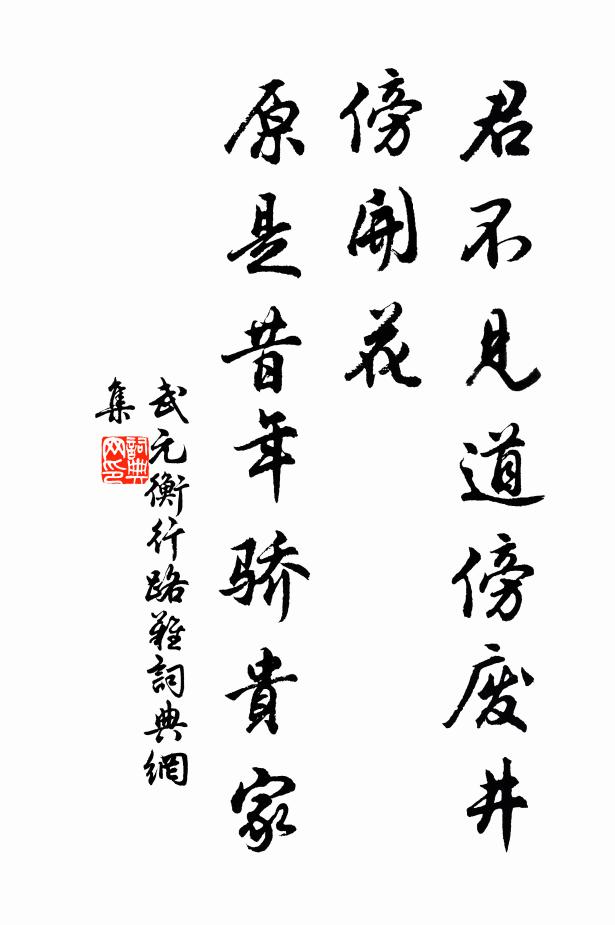 君不见道傍废井
傍開花
原是昔年骄貴家
武元衡行路難詞典網
集
詞典
网印